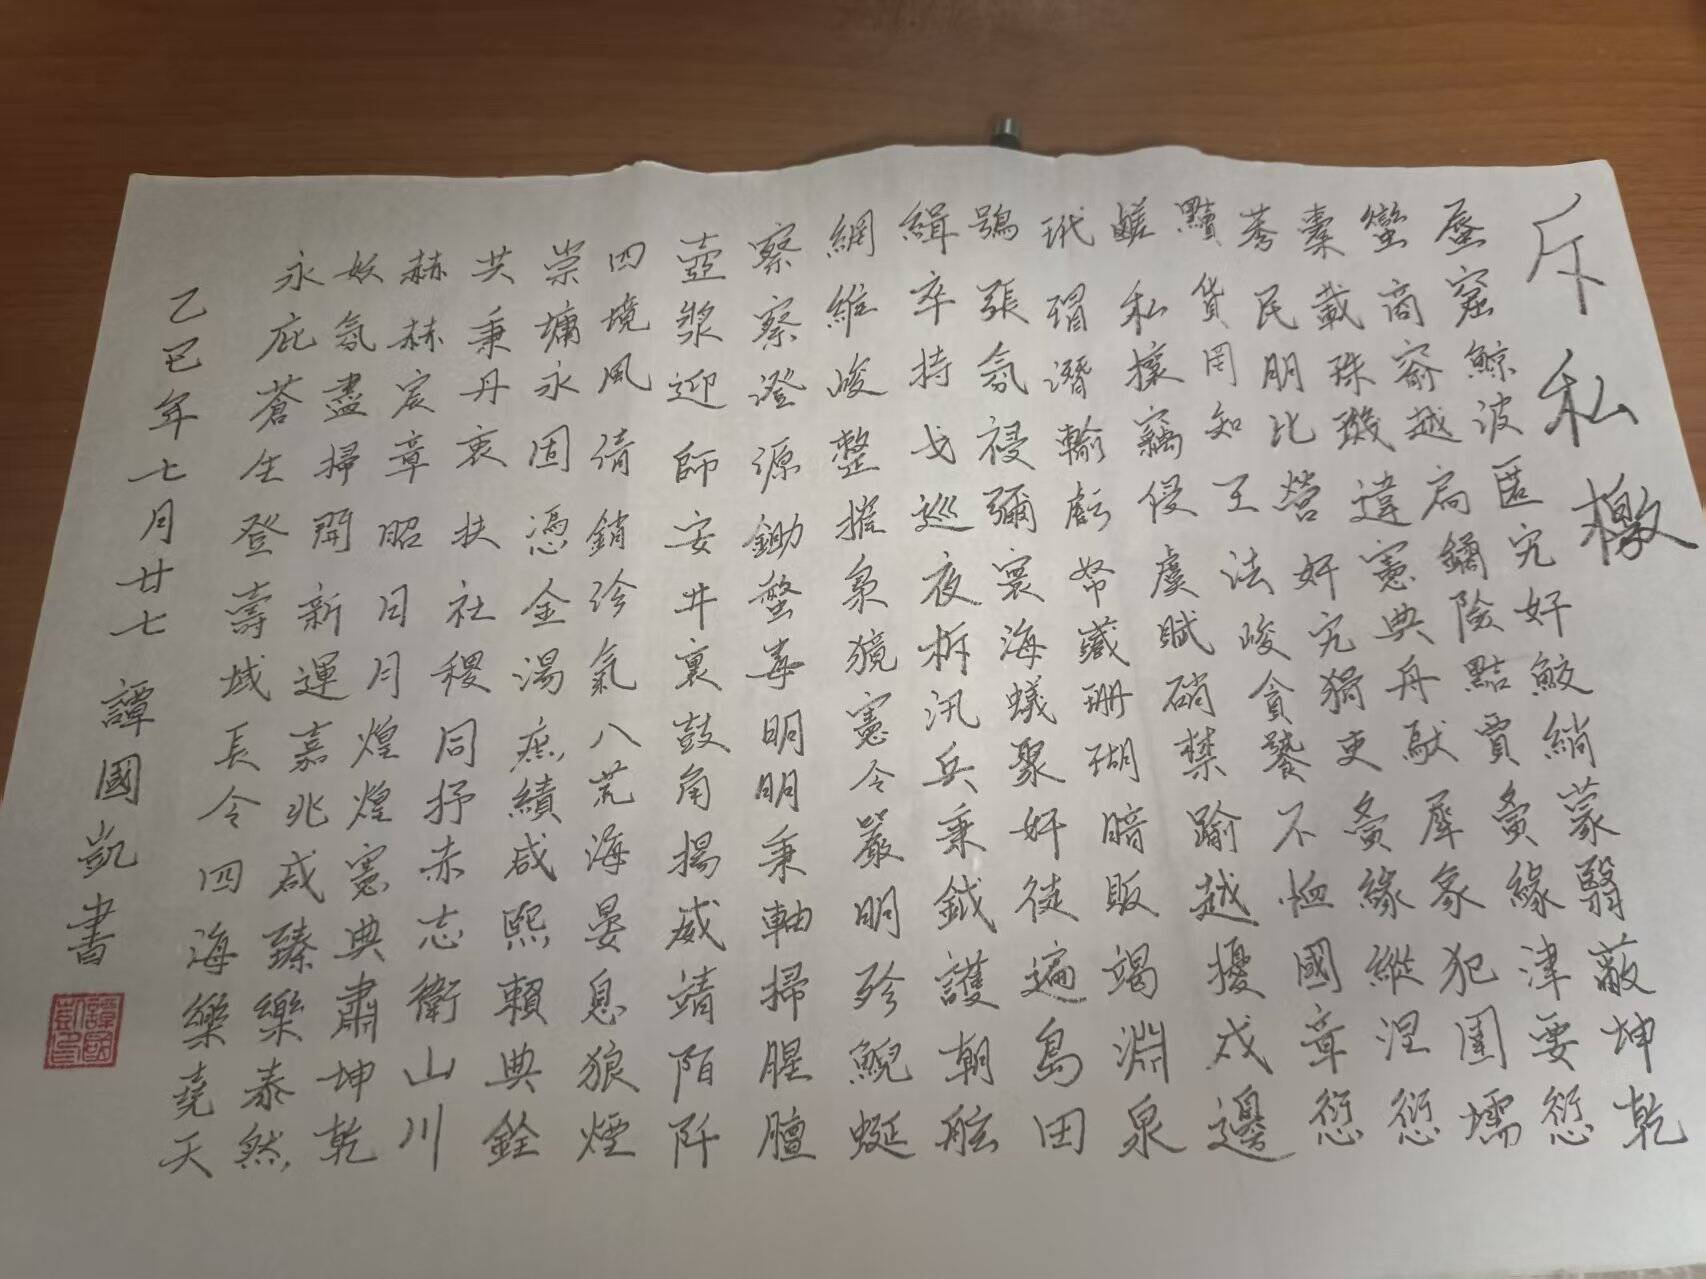 斥私檄
蜃窟鯨波匿宄奸鮫綃蒙翳蔽坤乾
蠻商窬越扃鐍險黠賈夤緣津要愆
橐載珠璣違憲典舟馱犀象犯圉壖
莠民朋比營奸宄猾吏夤緣縱涅愆
黷貨罔知王法峻貪饕不恤國章愆
鹺私攘竊侵虞賦硝禁踰越擾戍邊
玳瑁潛輸虧帑藏珊瑚暗販竭淵泉
鴞張氛祲彌寰海蟻聚奸徒遍島田
緝卒持戈巡夜柝汛兵秉鉞護朝舷
網維峻整摧梟獍憲令嚴明殄鯢蜒
察察澄源鋤蝥毒明明秉軸掃腥膻
壺漿迎師安井裏鼓角揚威靖陌阡
四境風清銷沴氣八荒海晏息狼煙
崇墉永固憑金湯庶績咸熙賴典銓
共秉丹衷扶社稷同抒赤志衛山川
赫赫宸章昭日月煌煌憲典肅坤乾
妖氛盡掃開新運嘉兆咸臻樂泰然
永庇蒼生登壽域長令四海樂堯天
乙巳年七月廿七 譚國凱書
譚國凱印